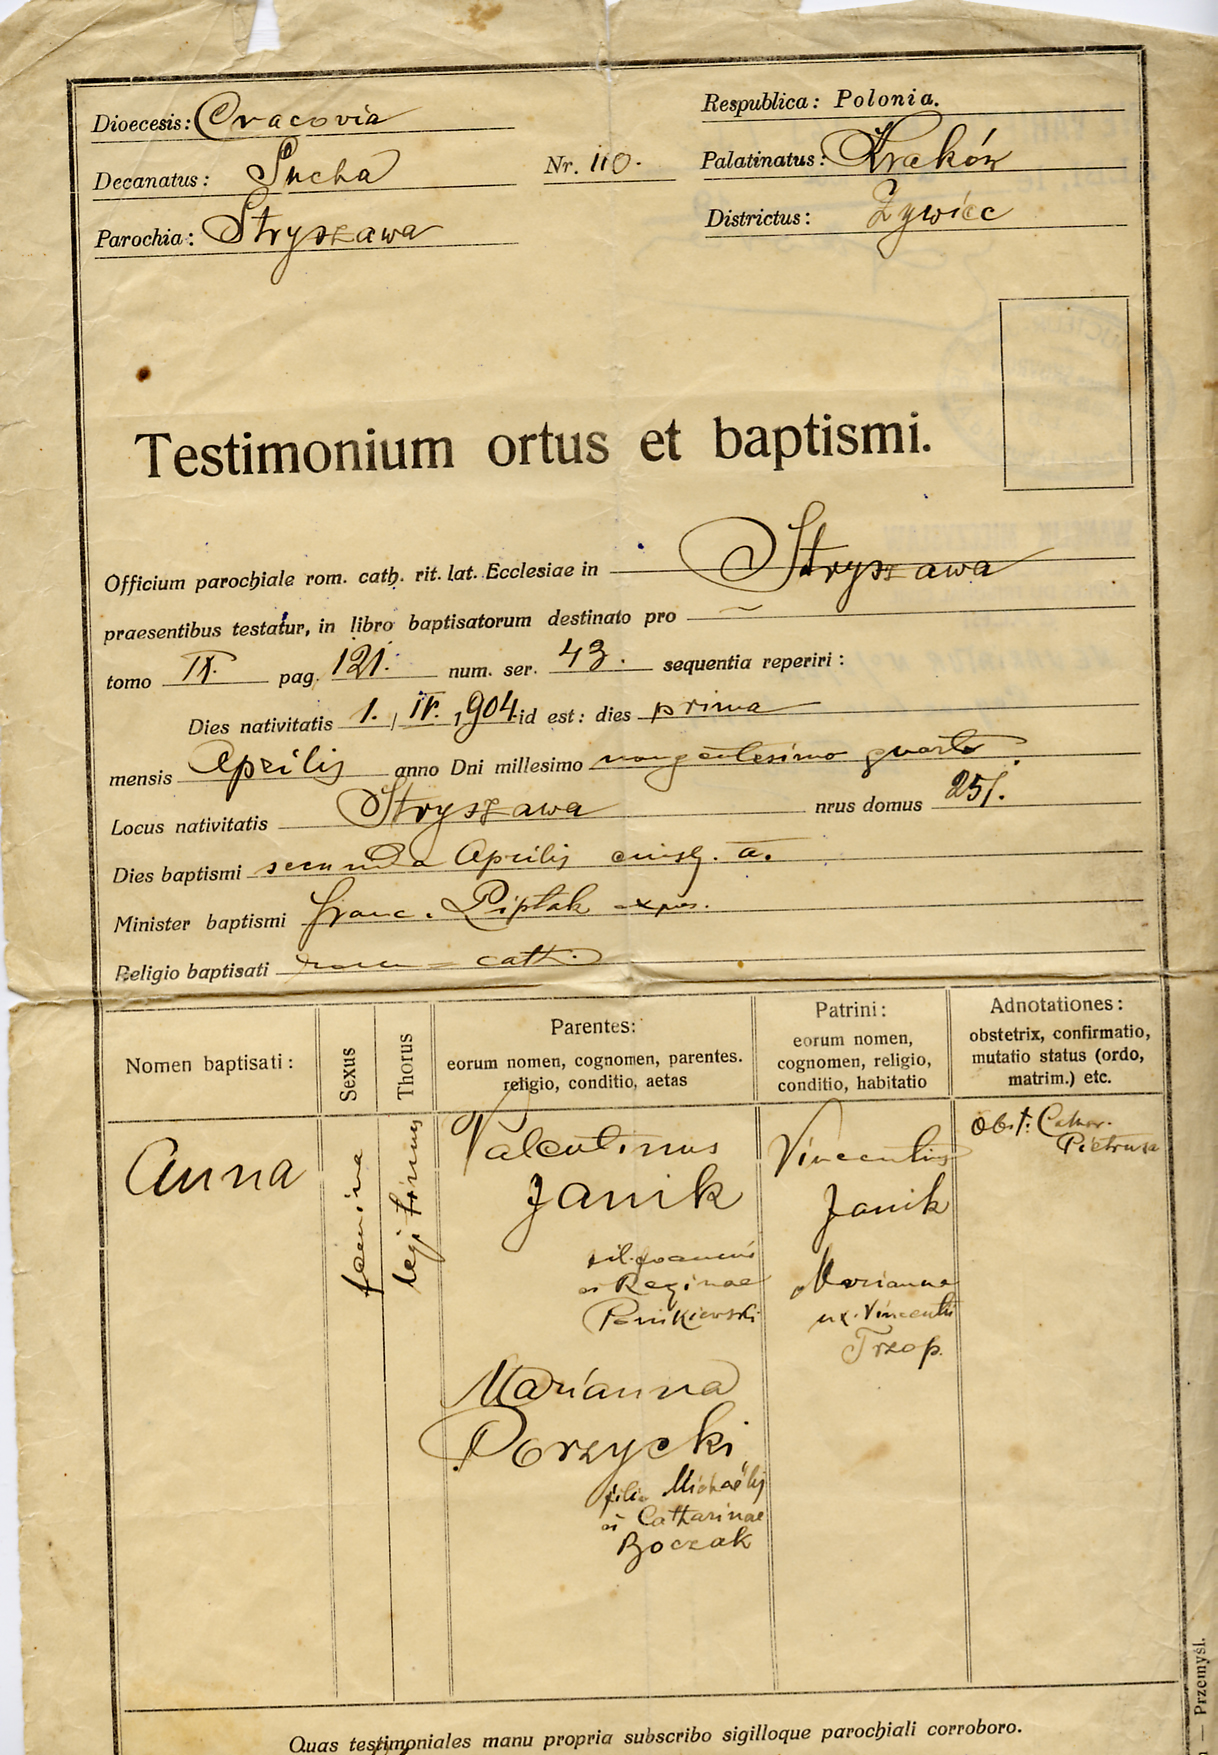 Dioecesis: Cracovia
Respublica: Polonia.
Decanatus: Sucha
Nr. 110.
Palatinatus: Kraków
Parochia: Stryszawa
Districtus: Żywiec
Testimonium ortus et baptismi.
Officium parochiale rom. cath. rit. lat. Ecclesiae in Stryszawa
praesentibus testatur, in libro baptisatorum destinato pro —
tomo IX. pag. 121. num. ser. 43. sequentia reperiri:
Dies nativitatis 1. / IV. 1904. id est: dies prima
mensis Aprilis anno Dni millesimo nongentesimo quarto.
Locus nativitatis Stryszawa nrus domus 251.
Dies baptismi secunda Aprilis eiusq. a.
Minister baptismi Franc. Piptak expos.
Religio baptisati rom - cath.
Nomen baptisati:
Sexus
Thorus
Parentes:
eorum nomen, cognomen, parentes.
religio, conditio, aetas
Patrini:
eorum nomen,
cognomen, religio,
conditio, habitatio
Adnotationes:
obstetrix, confirmatio,
mutatio status (ordo,
matrim.) etc.
Anna
foemina
legitimus
Valentinus
Janik
fil. Joannis
et Reginae
Penikiewski
Marianna
Porzycki
filia Michaëlis
et Catharinae
Boczak
Vincentius
Janik
Marianna
ux. Vincentii
Trzop.
Obst: Cathar.
Pietrusa
Quas testimoniales manu propria subscribo sigilloque parochiali corroboro.
— Przemyśl.